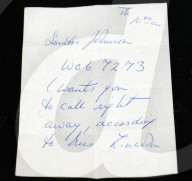 Th
10:40am
Senator Johnson
WO6 7273
wants you
to call right
away, according
to Mrs Lincoln